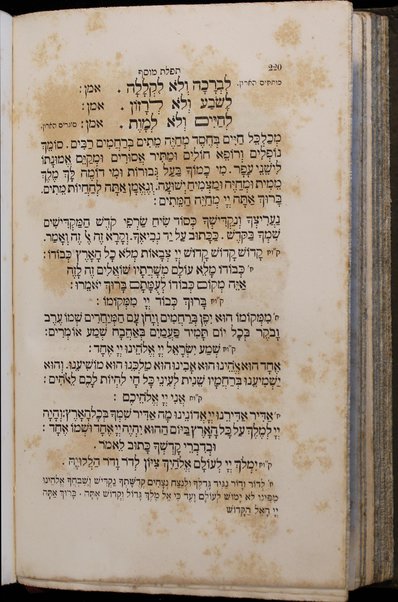 220
תפלת מוסף
פותחים הארון. לִבְרָכָה וְלֹא לִקְלָלָה . אמן :
לְשֹׂבַע וְלֹא לְרָזוֹן . אמן :
לְחַיִּים וְלֹא לְמָוֶת . אמן : סוגרים הארון.
מְכַלְכֵּל חַיִּים בְּחֶסֶד מְחַיֵּה מֵתִים בְּרַחֲמִים רַבִּים . סוֹמֵךְ
נוֹפְלִים וְרוֹפֵא חוֹלִים וּמַתִּיר אֲסוּרִים וּמְקַיֵּם אֱמוּנָתוֹ
לִישֵׁנֵי עָפָר . מִי כָמוֹךָ בַּעַל גְּבוּרוֹת וּמִי דוֹמֶה לָּךְ מֶלֶךְ
מֵמִית וּמְחַיֶּה וּמַצְמִיחַ יְשׁוּעָה . וְנֶאֱמָן אַתָּה לְהַחֲיוֹת מֵתִים .
בָּרוּךְ אַתָּה יְיָ מְחַיֵּה הַמֵּתִים :
נַעֲרִיצְךָ וְנַקְדִּישְׁךָ כְּסוֹד שִׂיחַ שַׂרְפֵי קֹדֶשׁ הַמַּקְדִּישִׁים
שִׁמְךָ בַּקֹּדֶשׁ . כַּכָּתוּב עַל יַד נְבִיאֶךָ . וְקָרָא זֶה אֶל זֶה וְאָמַר .
קו״ח קָדוֹשׁ קָדוֹשׁ קָדוֹשׁ יְיָ צְבָאוֹת מְלֹא כָל הָאָרֶץ כְּבוֹדוֹ :
ח׳ כְּבוֹדוֹ מָלֵא עוֹלָם מְשָׁרְתָיו שׁוֹאֲלִים זֶה לָזֶה
אַיֵּה מְקוֹם כְּבוֹדוֹ לְעֻמָּתָם בָּרוּךְ יֹאמֵרוּ :
קו״ח בָּרוּךְ כְּבוֹד יְיָ מִמְּקוֹמוֹ :
ח׳ מִמְּקוֹמוֹ הוּא יִפֶן בְּרַחֲמִים וְיָחֹן עַם הַמְיַחֲדִים שְׁמוֹ עֶרֶב
וָבֹקֶר בְּכָל יוֹם תָּמִיד פַּעֲמַיִם בְּאַהֲבָה שְׁמַע אוֹמְרִים :
קו״ח שְׁמַע יִשְׂרָאֵל יְיָ אֱלֹהֵינוּ יְיָ אֶחָד :
אֶחָד הוּא אֱלֹהֵינוּ הוּא אָבִינוּ הוּא מַלְכֵּנוּ הוּא מוֹשִׁיעֵנוּ . וְהוּא
יַשְׁמִיעֵנוּ בְּרַחֲמָיו שֵׁנִית לְעֵינֵי כָּל חָי לִהְיוֹת לָכֶם לֵאלֹהִים :
קו״ח אֲנִי יְיָ אֱלֹהֵיכֶם :
ח׳ אַדִּיר אַדִּירֵנוּ יְיָ אֲדוֹנֵינוּ מָה אַדִּיר שִׁמְךָ בְּכָל הָאָרֶץ : וְהָיָה
יְיָ לְמֶלֶךְ עַל כָּל הָאָרֶץ בַּיּוֹם הַהוּא יִהְיֶה יְיָ אֶחָד וּשְׁמוֹ אֶחָד :
וּבְדִבְרֵי קָדְשְׁךָ כָּתוּב לֵאמֹר .
קו״ח יִמְלֹךְ יְיָ לְעוֹלָם אֱלֹהַיִךְ צִיּוֹן לְדֹר וָדֹר הַלְלוּיָהּ :
ח׳ לְדוֹר וָדוֹר נַגִּיד גָּדְלֶךָ וּלְנֵצַח נְצָחִים קְדֻשָּׁתְךָ נַקְדִּישׁ וְשִׁבְחֲךָ אֱלֹהֵינוּ
מִפִּינוּ לֹא יָמוּשׁ לְעוֹלָם וָעֶד כִּי אֵל מֶלֶךְ גָּדוֹל וְקָדוֹשׁ אָתָּה . בָּרוּךְ אַתָּה
יְיָ הָאֵל הַקָּדוֹשׁ